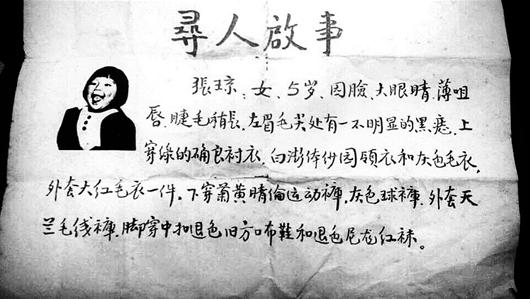 尋人啟事
張琼、女、5岁、园臉、大眼睛、薄咀
唇、睫毛稍長、左眉毛尖处有一不明显的黑痣、上
穿绿的确良衬衣、白澎体纱园領衣和灰色毛衣,
外套大红毛衣一件。下穿菊黄晴伦运动褲,灰色球褲、外套天
兰毛线褲,脚穿中扣退色旧方口布鞋和退色尼龙红袜。